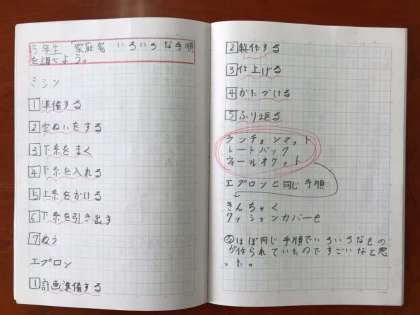 5年生 家庭科 いろいろな手順
を調べよう。
ミシン
1 準備する
2 空ぬいをする
3 下糸をまく
4 下糸を入れる
5 上糸をかける
6 下糸を引き出す
7 ぬう
エプロン
1 計画準備する
2 製作する
3 仕上げる
4 かたづける
5 ふり返る
ランチョンマット
トートバック
ウォールポケット
エプロンと同じ手順
きんちゃく
クッションカバーも
ほぼ同じ手順でいろいろなもの
が作られていたのですごいなと思
った。